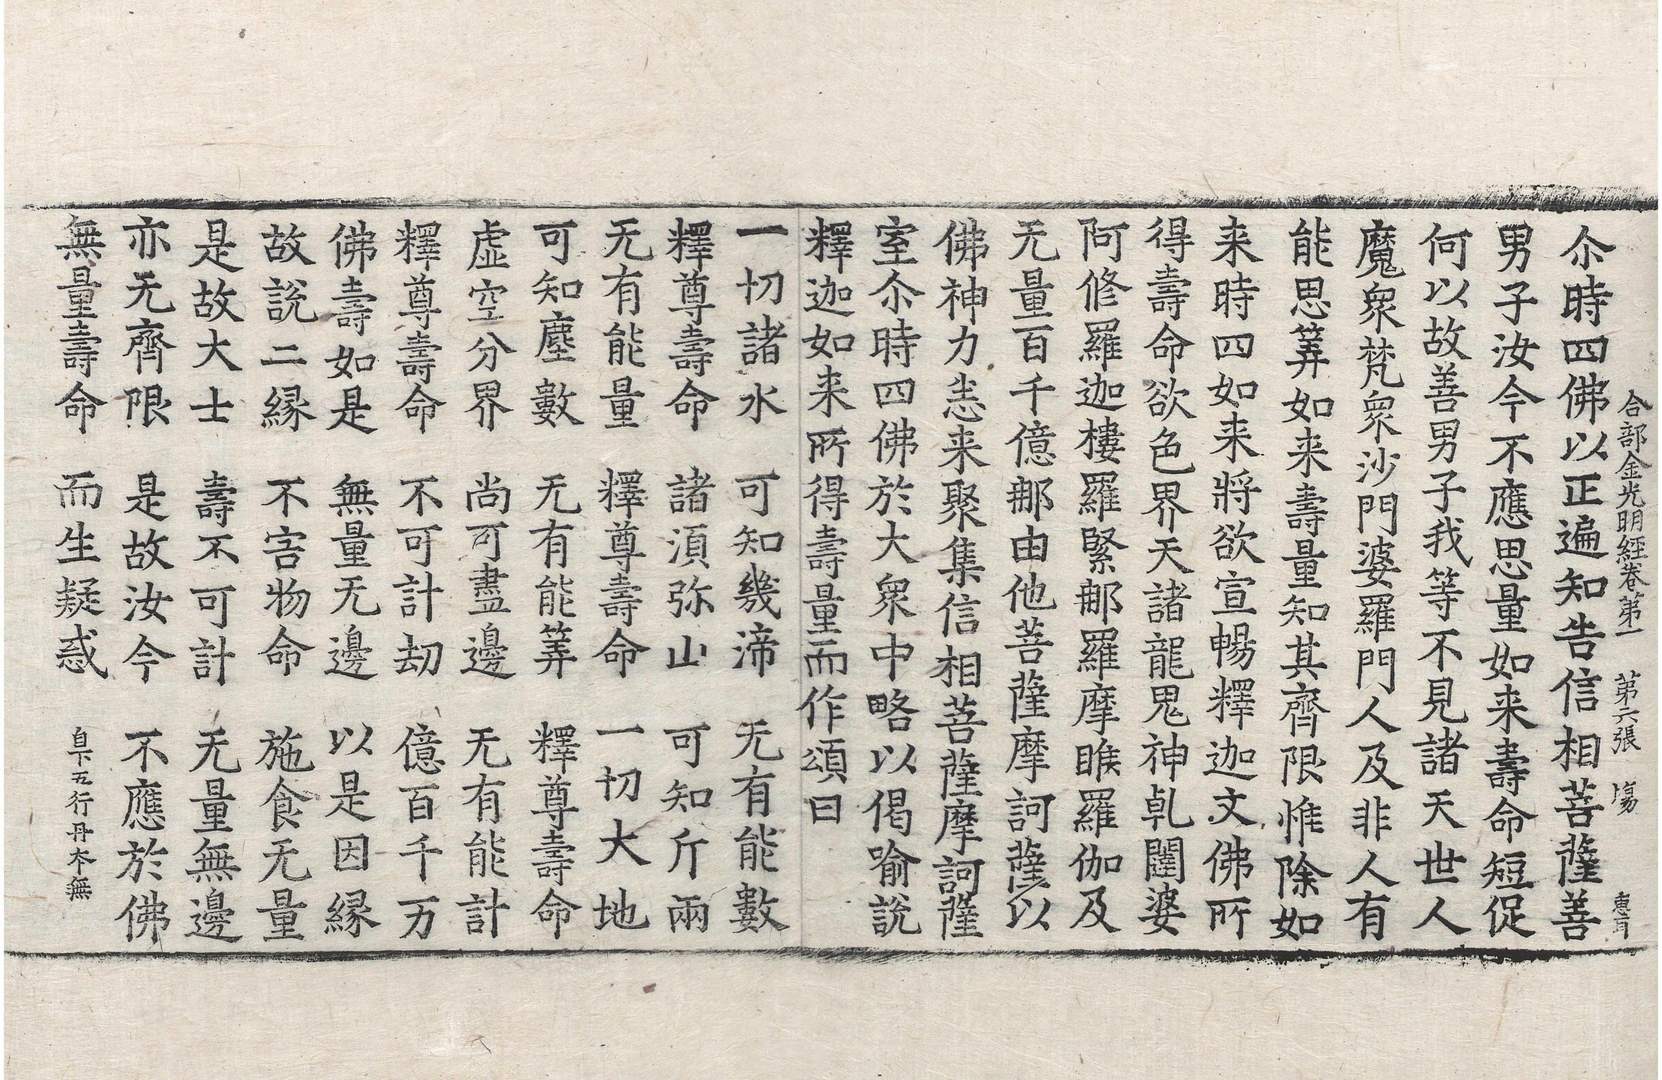 合部金光明經卷第一 第六張 惕
尒時四佛以正遍知告信相菩薩善
男子汝今不應思量如来壽命短促
何以故善男子我等不見諸天世人
魔衆梵衆沙門婆羅門人及非人有
能思筭如来壽量知其齊限惟除如
来時四如来將欲宣暢釋迦文佛所
得壽命欲色界天諸龍鬼神乹闥婆
阿修羅迦樓羅緊那羅摩睺羅伽及
无量百千億那由他菩薩摩訶薩以
佛神力悉来聚集信相菩薩摩訶薩
室尒時四佛於大衆中略以偈喻說
釋迦如来所得壽量而作頌曰
一切諸水 可知幾渧 无有能數
釋尊壽命 諸湏弥山 可知斤兩
无有能量 釋尊壽命 一切大地
可知塵數 无有能筭 釋尊壽命
虚空分界 尚可盡邊 无有能計
釋尊壽命 不可計劫 億百千万
佛壽如是 無量无邊 以是因縁
故說二縁 不害物命 施食无量
是故大士 壽不可計 无量無邊
亦无齊限 是故汝今 不應於佛
無量壽命 而生疑惑 自下五行丹本無